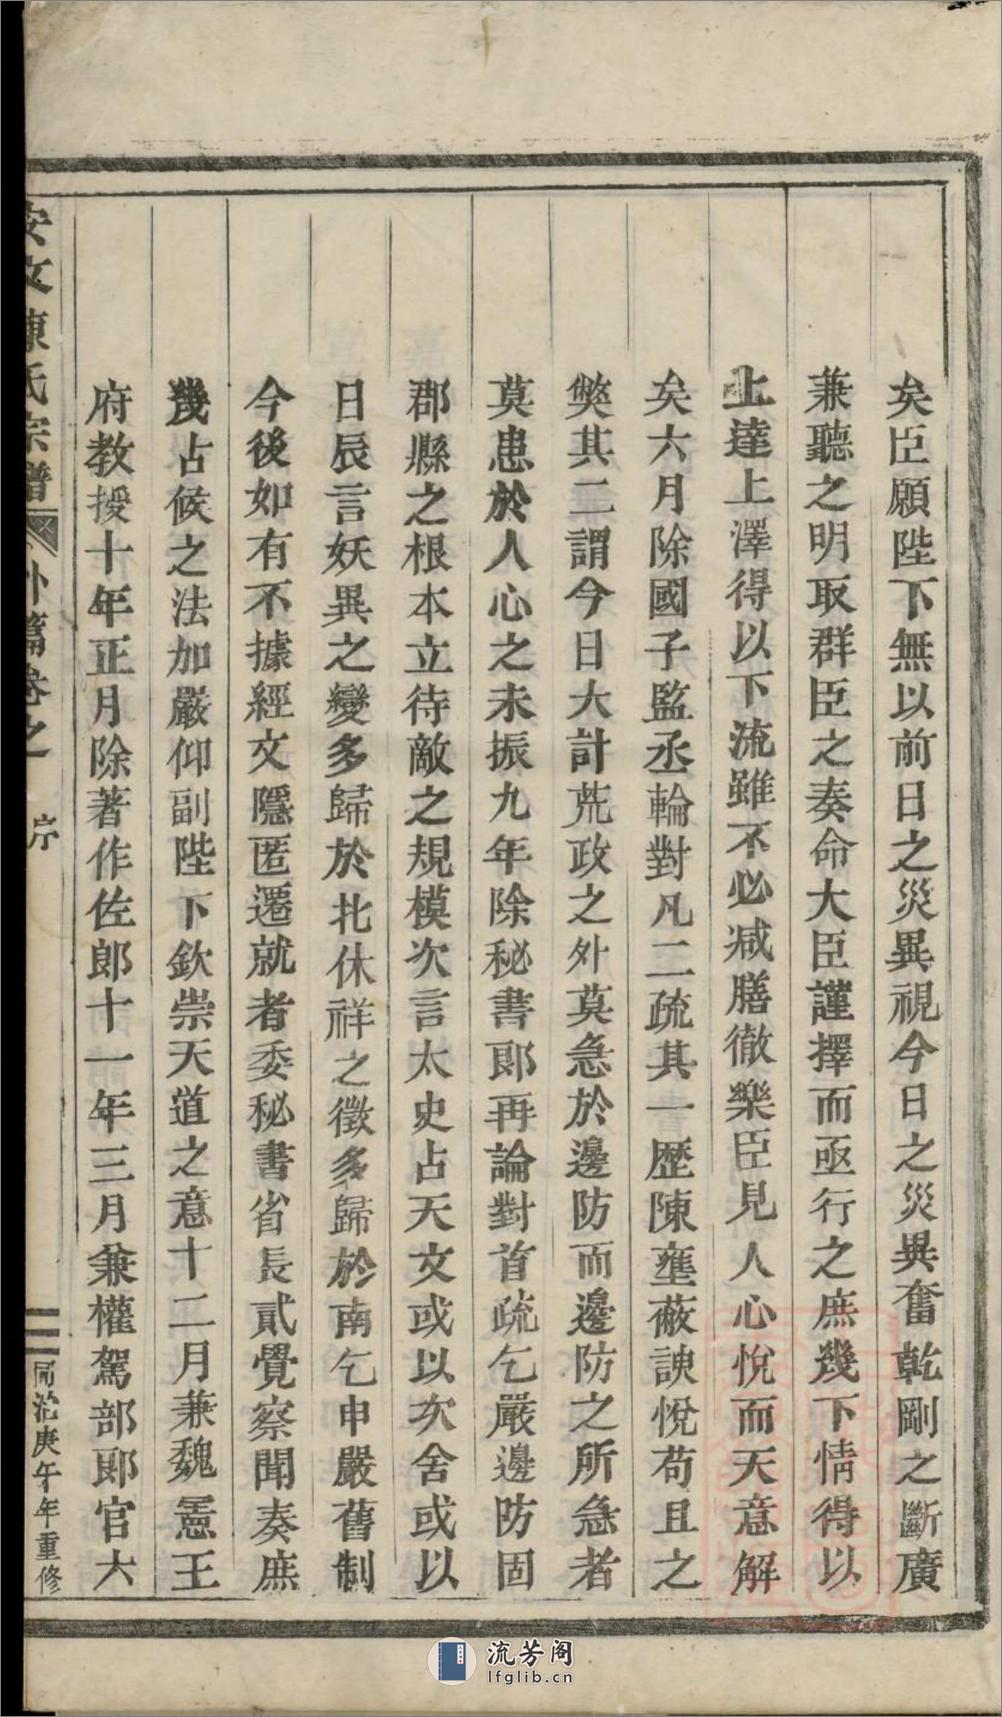 矣臣願陛下無以前日之災異視今日之災異奮乾剛之斷廣
兼聽之明取群臣之奏命大臣謹擇而亟行之庶幾下情得以
上達上澤得以下流雖不必减膳徹樂臣見人心悅而天意解
矣六月除國子監丞輪對凡二疏其一歷陳壅蔽諛悅苟且之
獘其二謂今日大計荒政之外莫急於邊防而邊防之所急者
莫患於人心之未振九年除秘書郎再論對首疏乞嚴邊防固
郡縣之根本立待敵之規模次言太史占天文或以次舍或以
日辰言妖異之變多歸於北休祥之徵多歸於南乞申嚴舊制
今後如有不據經文隱匿遷就者委秘書省長貳覺察聞奏庶
幾占候之法加嚴仰副陛下欽崇天道之意十二月兼魏惠王
府教授十年正月除著作佐郎十一年三月兼權駕部郎官六
安文陳氏宗譜 外篇卷之 序 同治庚午年重修
流芳阁
lfglib.cn